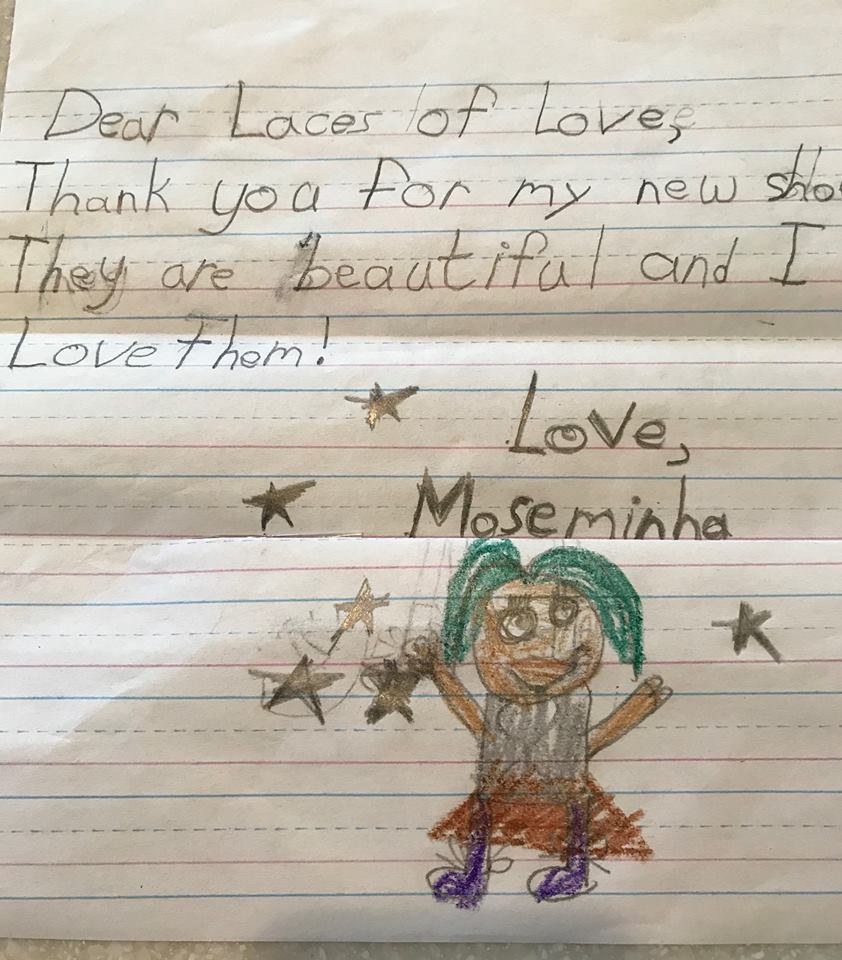 Dear Laces of Love,
Thank you for my new sho
They are beautiful and I
Love them!
Love,
Moseminha